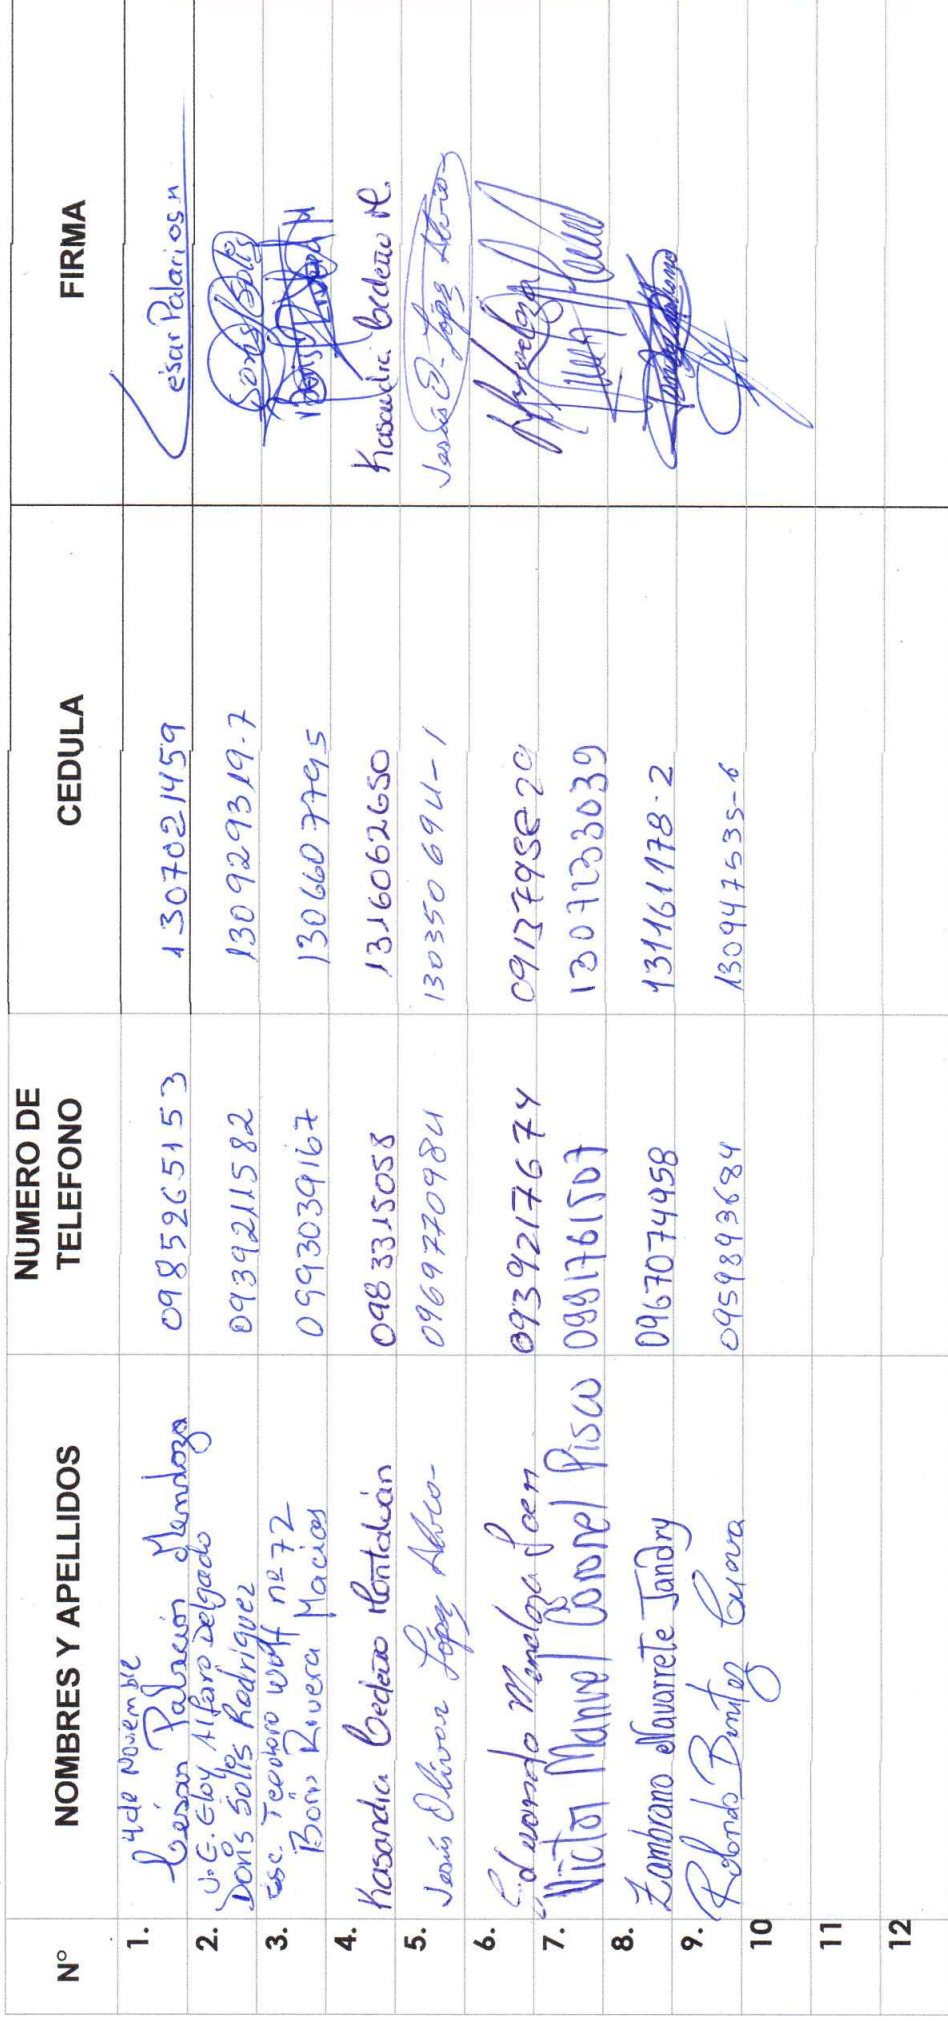 N° NOMBRES Y APELLIDOS NUMERO DE TELEFONO CEDULA FIRMA
4 de Noviembre
1. César Palacios Mendoza 0985265153 1307021459 Cesar Palacios M
U.E. Eloy Alfaro Delgado
2. Doris Solís Rodríguez 0939211582 130929319-7
Esc. Teodoro Wolf nº 72
3. Rivera Macías 0993039167 1306607795
4. Kasandra Cedeño Montalván 0983315058 1316062650 Kasandra Cedeño M.
5. Jesús Olivar López 0969770984 130350694-1 Jesús O. López
6. Eduardo Mendoza 0939217674
7. Victor Manuel Coronel Pisco 0991761507 1307123039
8. Zambrano Navarrete Jandry 0967074458 131161178-2
9. Rolando Benítez 0959893684 130947535-6
10
11
12